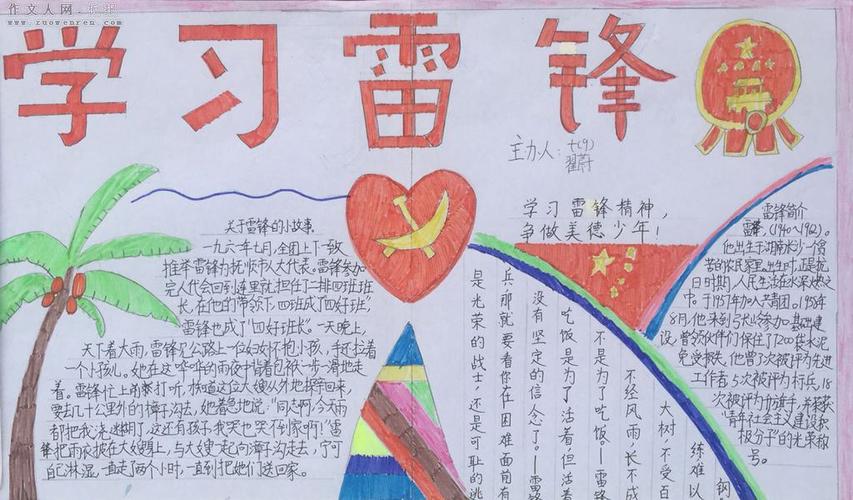 作文人网
www.zuowenren.com
学习雷锋
主办人：七(9)
翟蔚
学习雷锋精神，
争做美德少年！
关于雷锋的小故事。
一九六一年七月，全团上下一致
推举雷锋为抚顺市人大代表。雷锋参加
完人代会回到连里就担任了二排四班班
长，在他的带领下，四班成了“四好班”，
雷锋也成了“四好班长”。一天晚上，
天下着大雨，雷锋见公路上一位妇女怀抱小孩，手还拉着
一个小孩儿。她在这哗哗的雨夜中背着包袱一步一滑地走
着。雷锋忙上前打听，
要去几十里外的樟子沟去，她着急地说：“同志啊，今天雨
都把我浇迷糊了，这还有孩子我哭也哭不到家啊！”雷
锋把雨衣披在大嫂身上，与大嫂一起向樟子沟走去，宁可
自己淋湿一直走了两个小时，一直到把她们送回家。
雷锋简介
雷锋，(1940～1962)。
他出生于湖南长沙一个贫
苦的农民家里，出生时，正是抗
日时期，人民生活在水深火热之
中。于1957年加入共青团。1958年
8月，他来到弓长岭参加基础建
设，曾领伙伴们保住了7200袋水泥
免受损失，他曾3次被评为先进
工作者，5次被评为标兵，18
次被评为红旗手，并荣获
“青年社会主义建设积
极分子”的光荣称
号。
钢
练难以
大树，不受百
不经风雨，长不成
不是为了吃饭。—雷锋
吃饭是为了活着，但活着
没有坚定的信念了。—雷锋
兵，那就要看你在困难面前有
是光荣的战士，还是可耻的逃